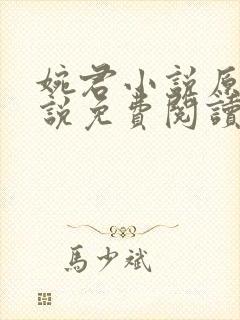 婉君小說原
說免費閱讀
馬少斌